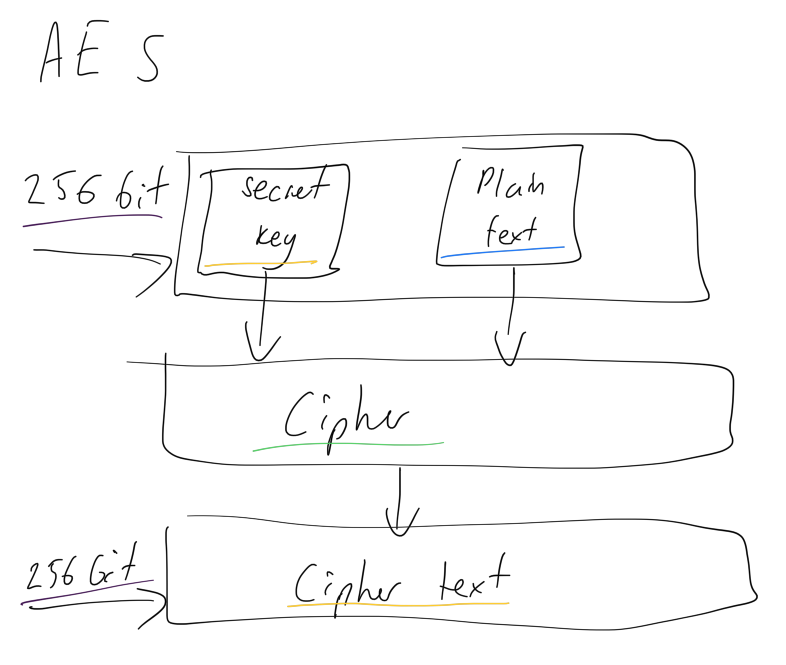 AES
256 bit
secret
key
Plain
text
Cipher
256 bit
Cipher text